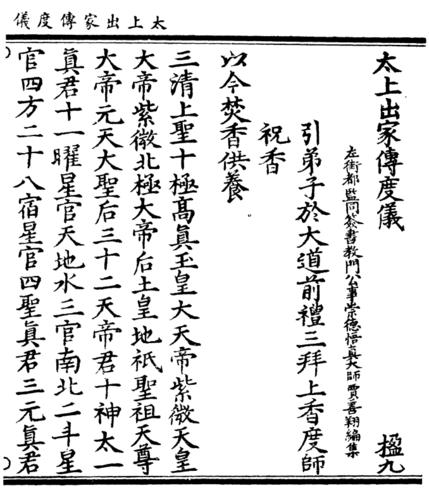 太上出家傳度儀
太上出家傳度儀　楹九
左街都監同簽書教門公事崇德悟真大師賈善翔編集
引弟子於大道前禮三拜上香度師
祝香
以今焚香供養
三清上聖十極高真玉皇大天帝紫微天皇
大帝紫微北極大帝后土皇地祇聖祖天尊
大帝元天大聖后三十二天帝君十神太一
真君十一曜星官天地水三官南北二斗星
官四方二十八宿星官四聖真君三元真君